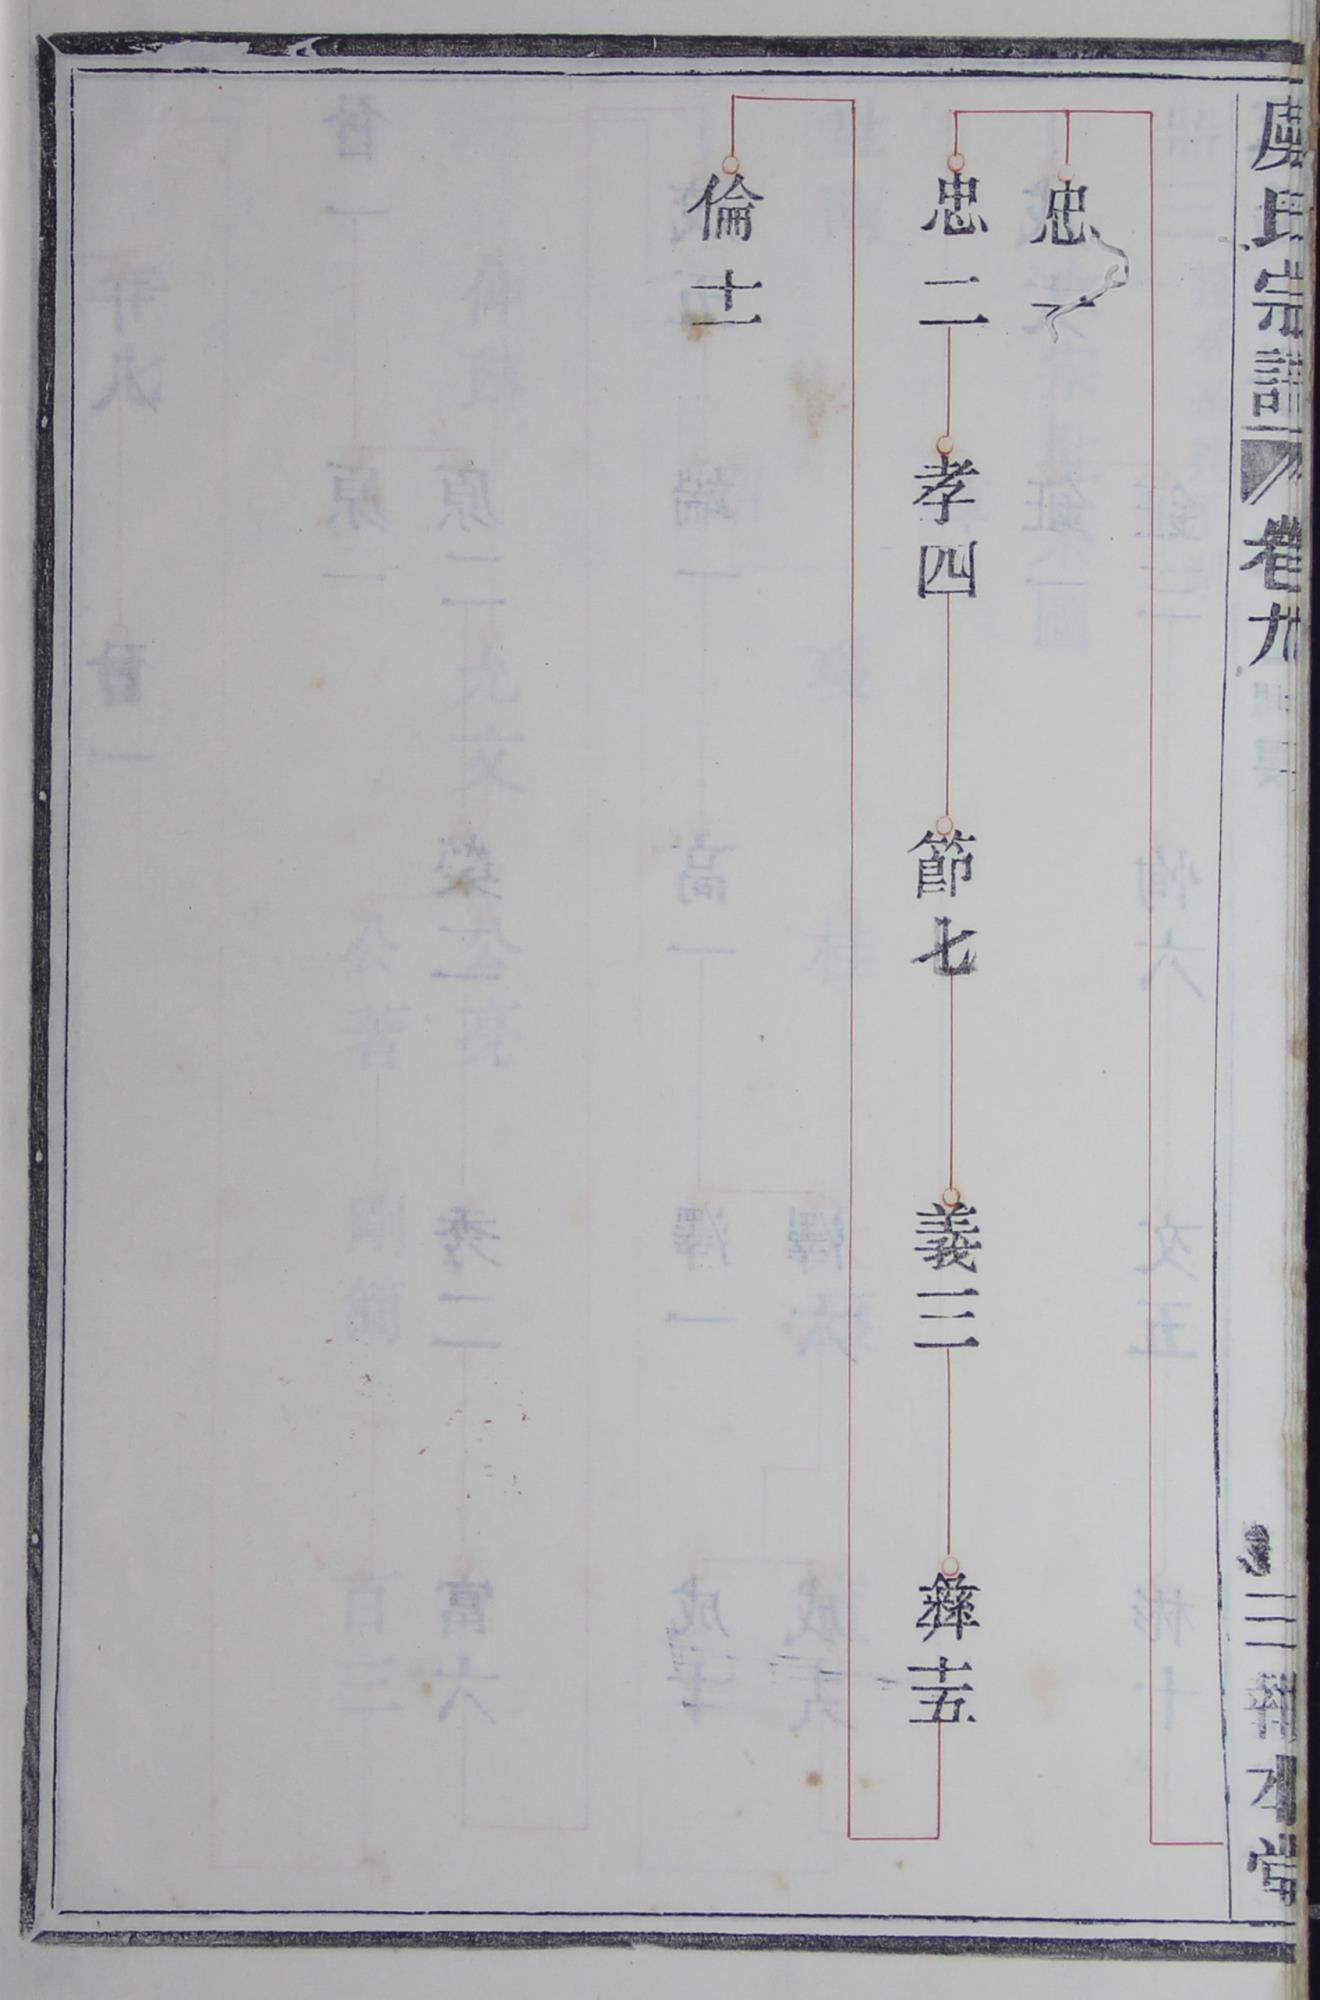 氏宗譜 卷九 三 報本堂
忠一
忠二 孝四 節七 義三 彝十五
倫十一